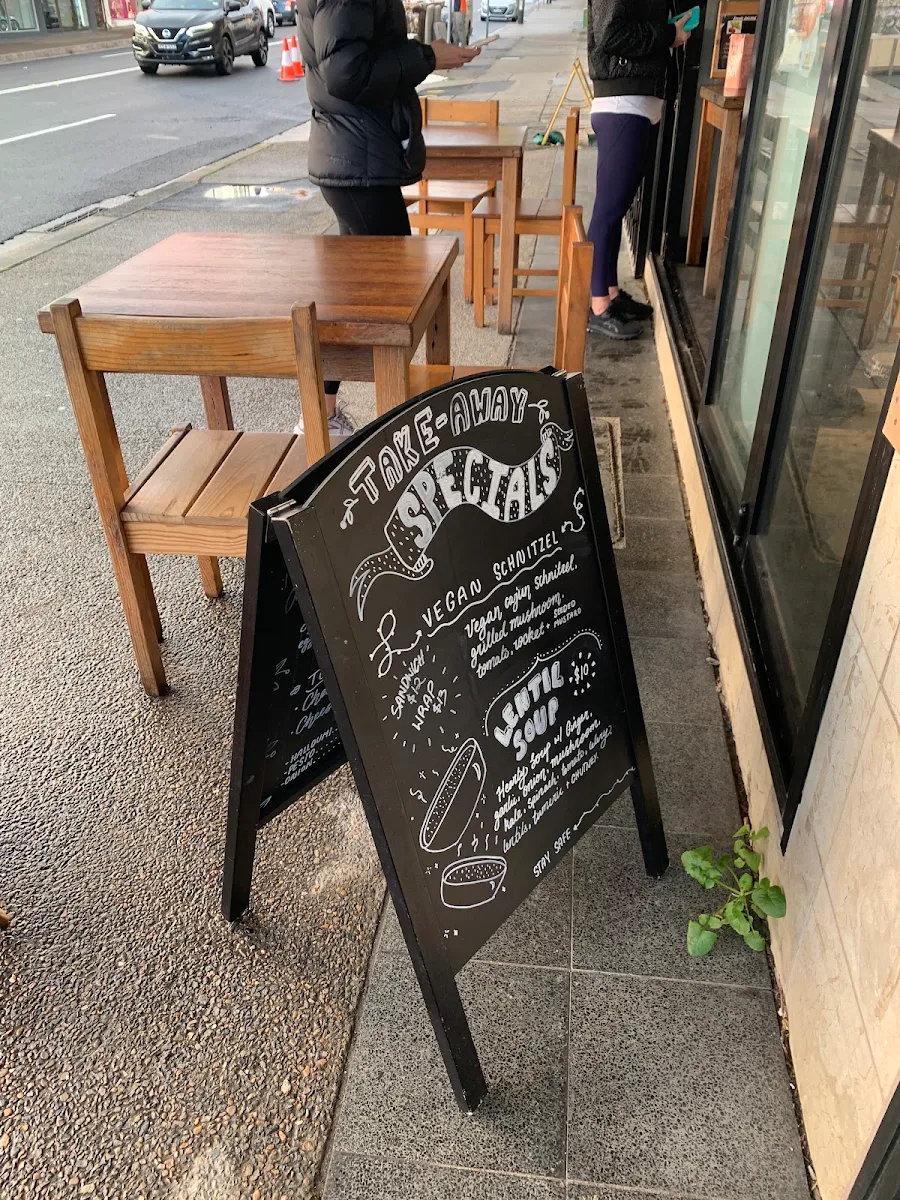 TAKE-AWAY
SPECIALS
VEGAN SCHNITZEL
Vegan cajun schnitzel,
grilled mushroom,
tomato, rocket + SEEDED
MUSTARD
SANDWICH
$12
WRAP
$13
LENTIL
SOUP
$10
Hearty Soup w/ Ginger,
garlic, onion, mushroom,
kale, spinach, tomato,
lentils, turmeric + CHUTNEY.
STAY SAFE
HALLOUMI
PESTO
ONION